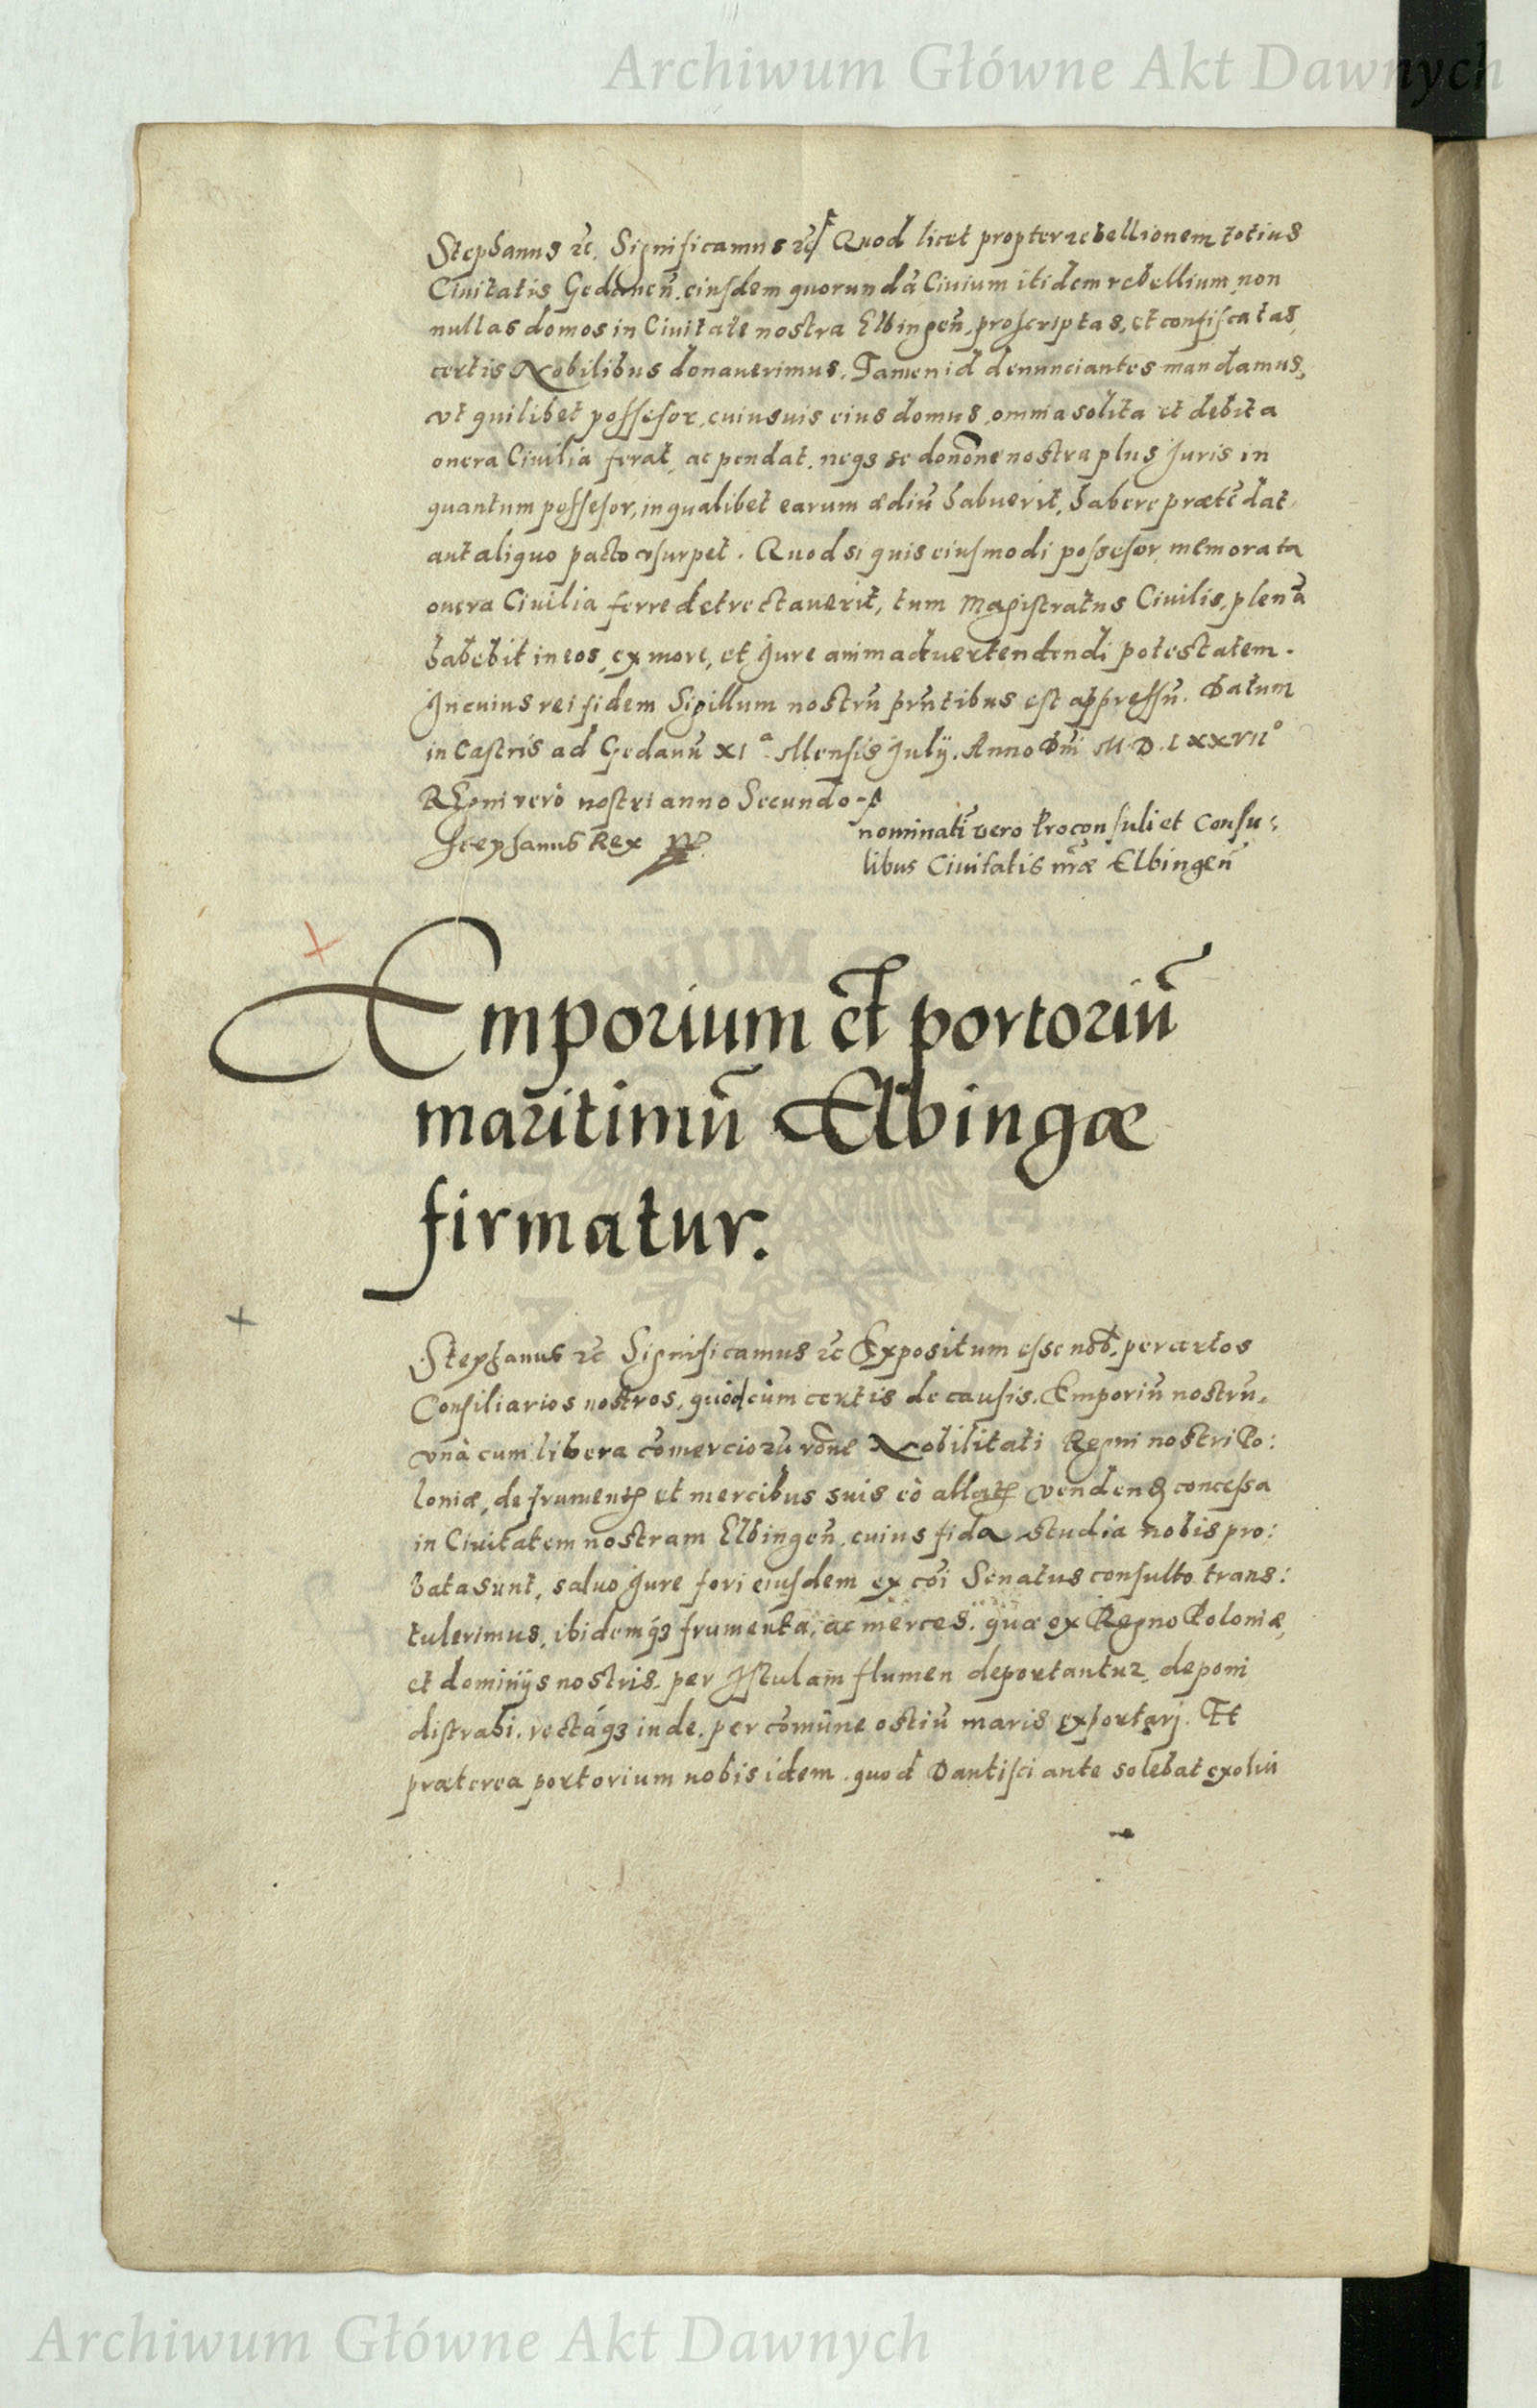 Archiwum Główne Akt Dawnych
Stephanus ꝛc. Significamus ꝛc Quod licet propter rebellionem totius
Ciuitatis Gedanen̄. eiusdem quorundā Ciuium itidem rebellium, non
nullas domos in Ciuitate nostra Elbingen̄. proscriptas, et confiscatas,
certis Nobilibus donauerimus. Tamen id denunciantes mandamus,
vt quilibet possessor, cuiusuis eius domus, omnia solita et debita
onera Ciuilia ferat, ac pendat. neqȝ se donōne nostra plus Juris in
quantum possessor, in qualibet earum ædiū habuerit, habere prætēdat,
aut aliquo pacto vsurpet. Quod si quis eiusmodi possessor, memorata
onera Ciuilia ferre detrectauerit, tum Magistratus Ciuilis, plenā
habebit in eos, ex more, et Jure animaduertendendi potestatem.
In cuius rei fidem Sigillum nostrū pr̄ntibus est appressū. Datum
in Castris ad Gedanū XIᵃ. Mensis Julÿ. Anno Dn̄i M.D.LXXVIIº
Regni verò nostri anno Secundo
nominatī vero Proconsuli et Consu:
Stephanus Rex
libus Ciuitatis n̄ræ Elbingen̄
Emporium et portoriū
maritimū Elbingæ
firmatur.
Stephanus ꝛc Significamus ꝛc Expositum esse nob. per certos
Consiliarios nostros, quòd cùm certis de causis. Emporiū nostrū,
vnà cum libera cōmerciorū rōne Nobilitati Regni nostri Po:
loniæ, de frumentꝭ et mercibus suis eò allatꝭ vendendꝭ concessa
in Ciuitatem nostram Elbingen̄. cuius fida studia nobis pro:
bata sunt, saluo Jure fori eiusdem ex cōi Senatus consulto trans:
tulerimus, ibidemqȝ frumenta, ac merces. quæ ex Regno Poloniæ,
et dominÿs nostris. per Istulam flumen deportantur, deponi
distrahi. rectáqȝ inde. per cōmūne ostiū maris exportarj. Et
præterea portorium nobis idem. quod Dantisci ante solebat exolui
Archiwum Główne Akt Dawnych